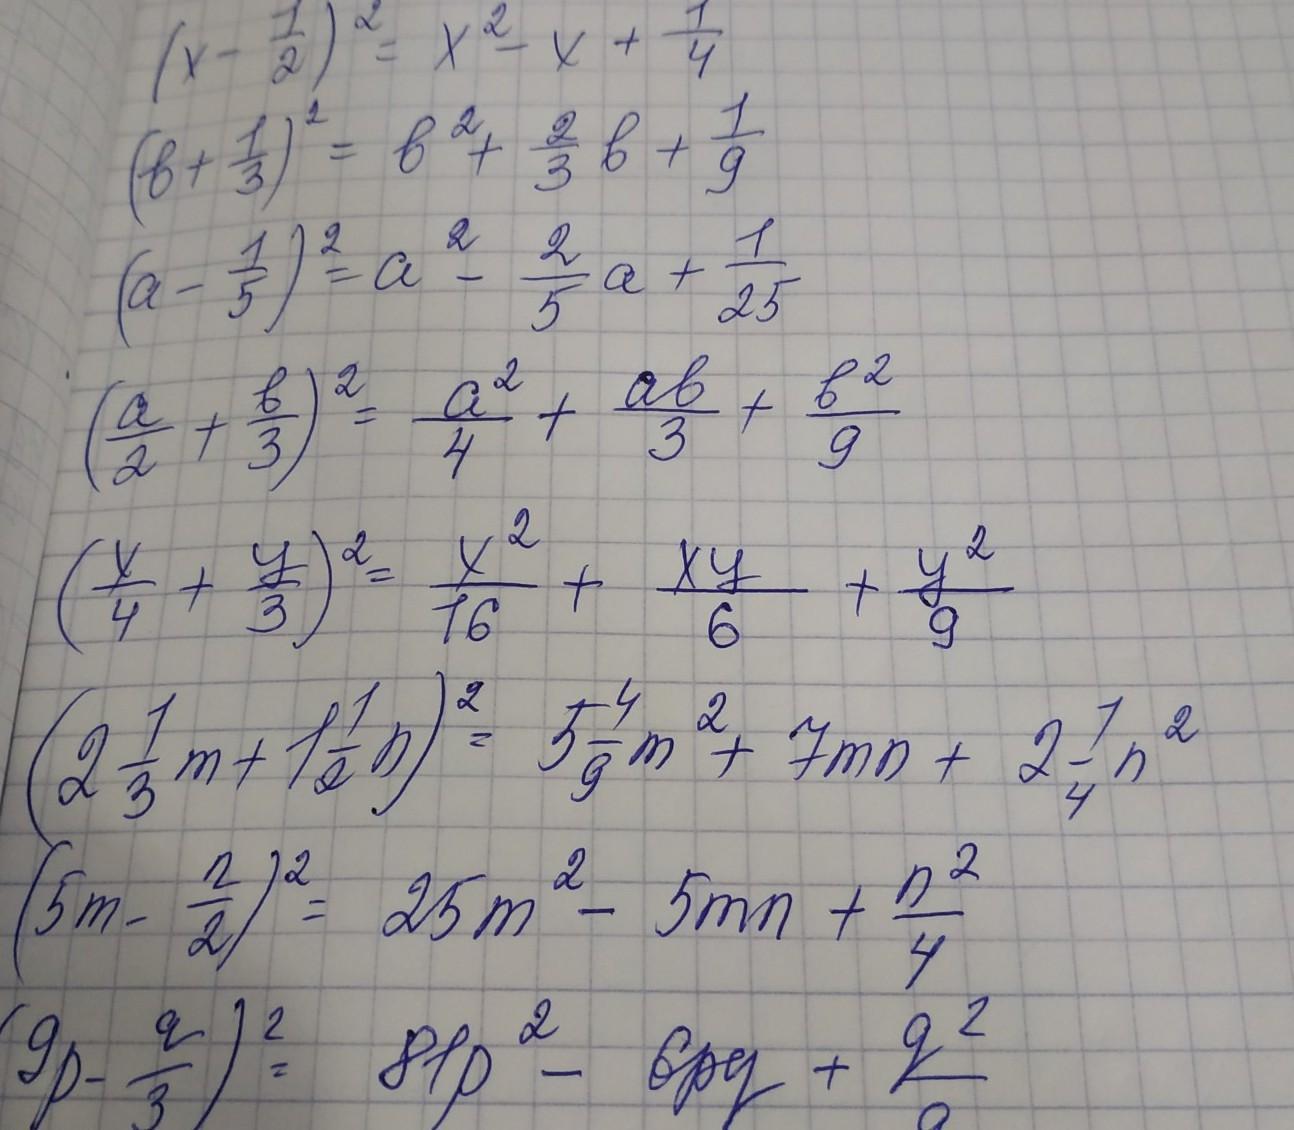 (x - 1/2)² = x² - x + 1/4
(b + 1/3)² = b² + 2/3 b + 1/9
(a - 1/5)² = a² - 2/5 a + 1/25
(a/2 + b/3)² = a²/4 + ab/3 + b²/9
(x/4 + y/3)² = x²/16 + xy/6 + y²/9
(2 1/3 m + 1 1/2 n)² = 5 4/9 m² + 7mn + 2 1/4 n²
(5m - n/2)² = 25m² - 5mn + n²/4
(9p - q/3)² = 81p² - 6pq + q²/9